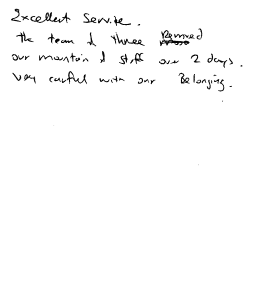 Excellent Service.
The team of three Removed
our mountain of stuff over 2 days.
Very careful with our Belonging.